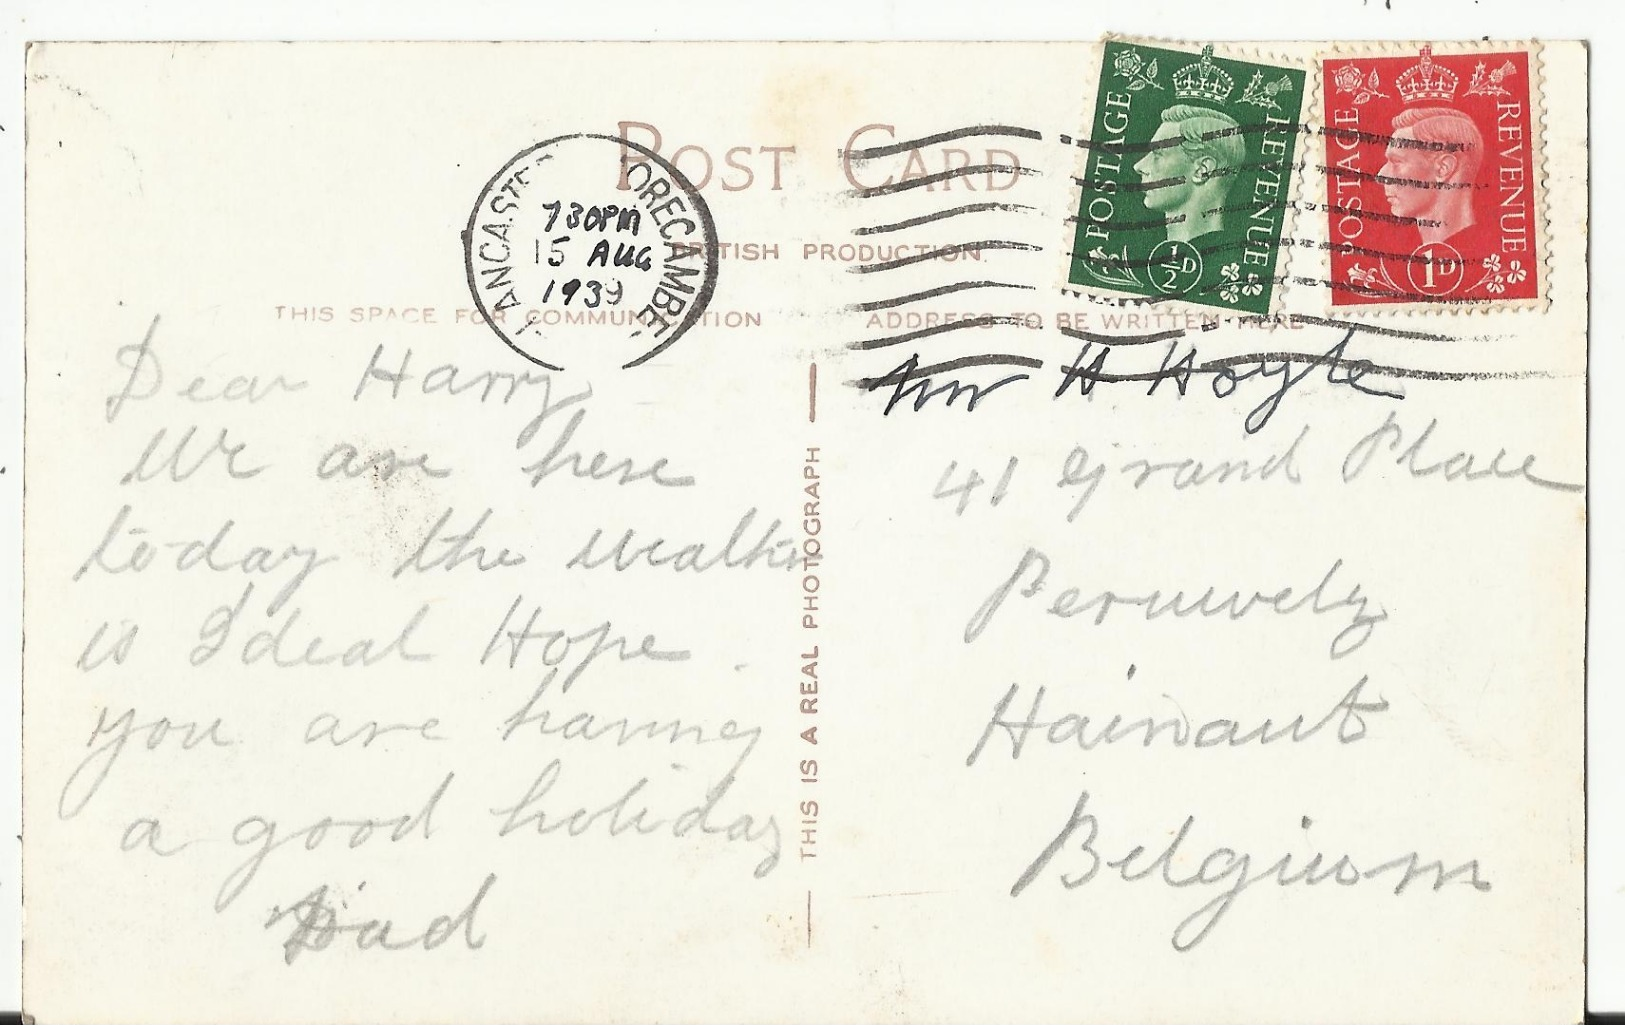 POST CARD
BRITISH PRODUCTION.
THIS SPACE FOR COMMUNICATION
ADDRESS TO BE WRITTEN HERE
LANCASTER MORECAMBE
730PM
15 AUG
1939
POSTAGE REVENUE
½D
POSTAGE REVENUE
1D
Dear Harry
We are here
today the weather
is Ideal Hope
you are having
a good holiday
Dad
THIS IS A REAL PHOTOGRAPH
Mr H Hoyle
41 Grand Place
Peruwelz
Hainaut
Belgium